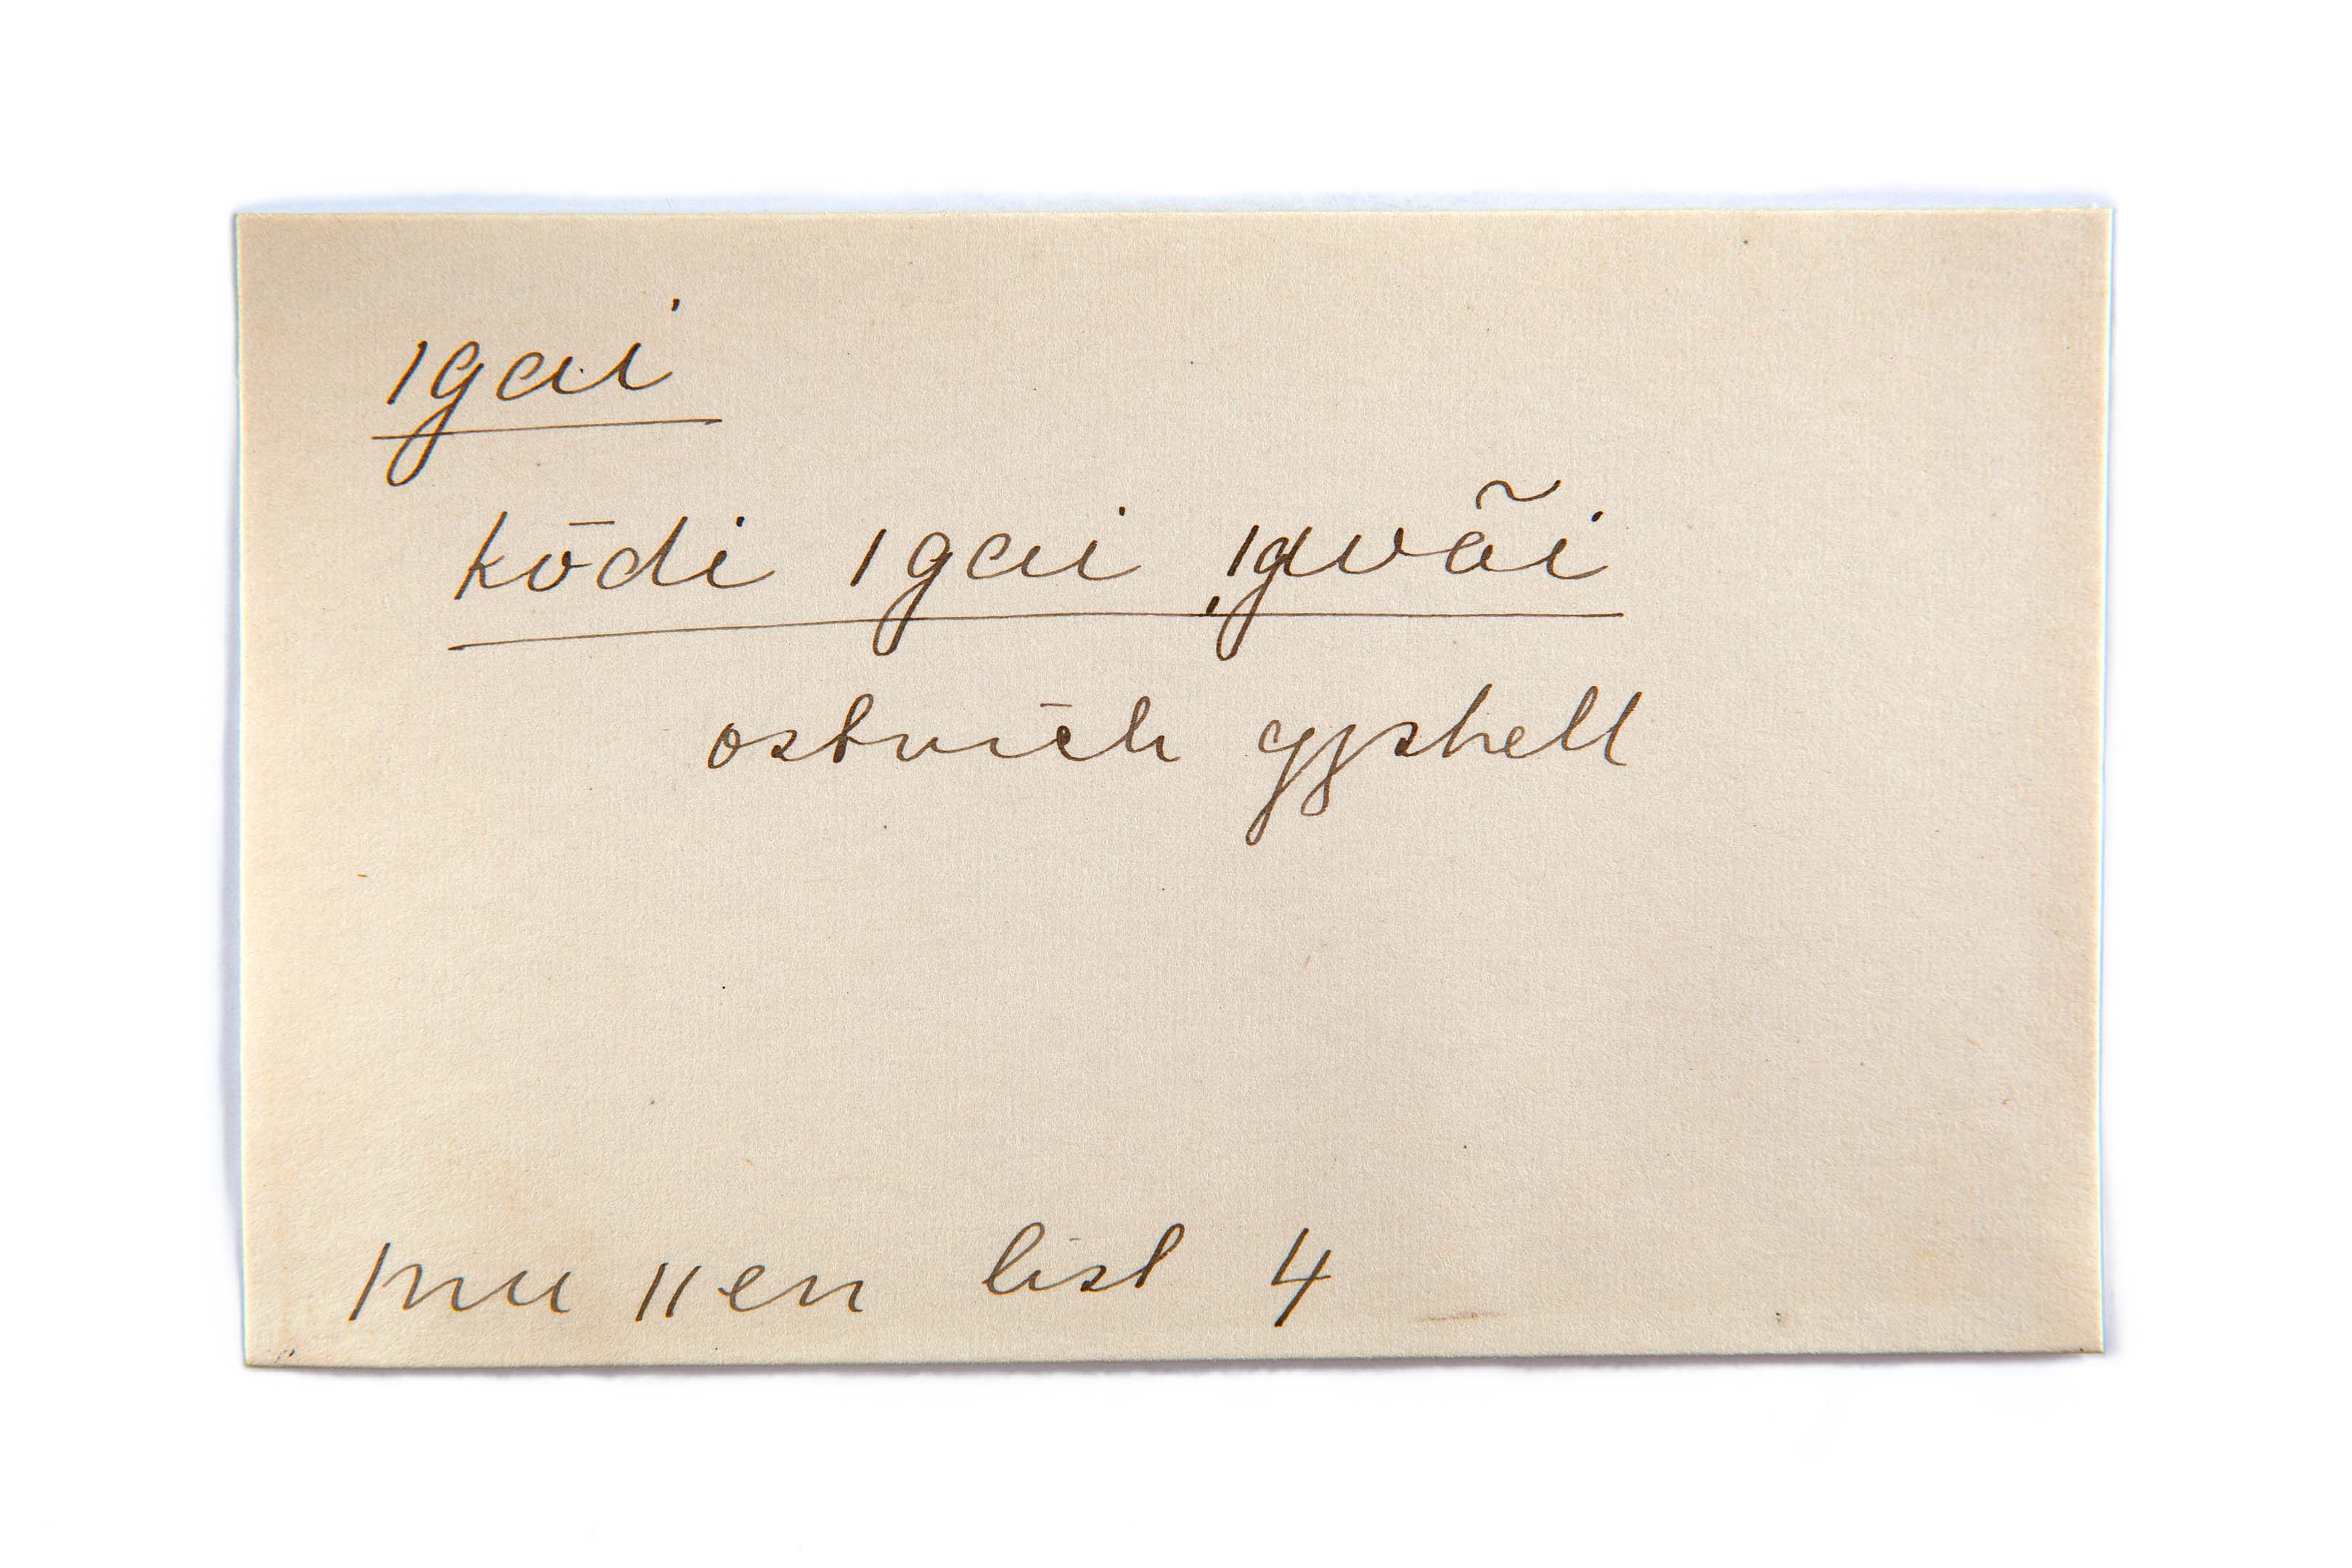 ǀgai
kōdi ǀgai ǀgwãi
ostrich eggshell
ǀnu ǁen list 4